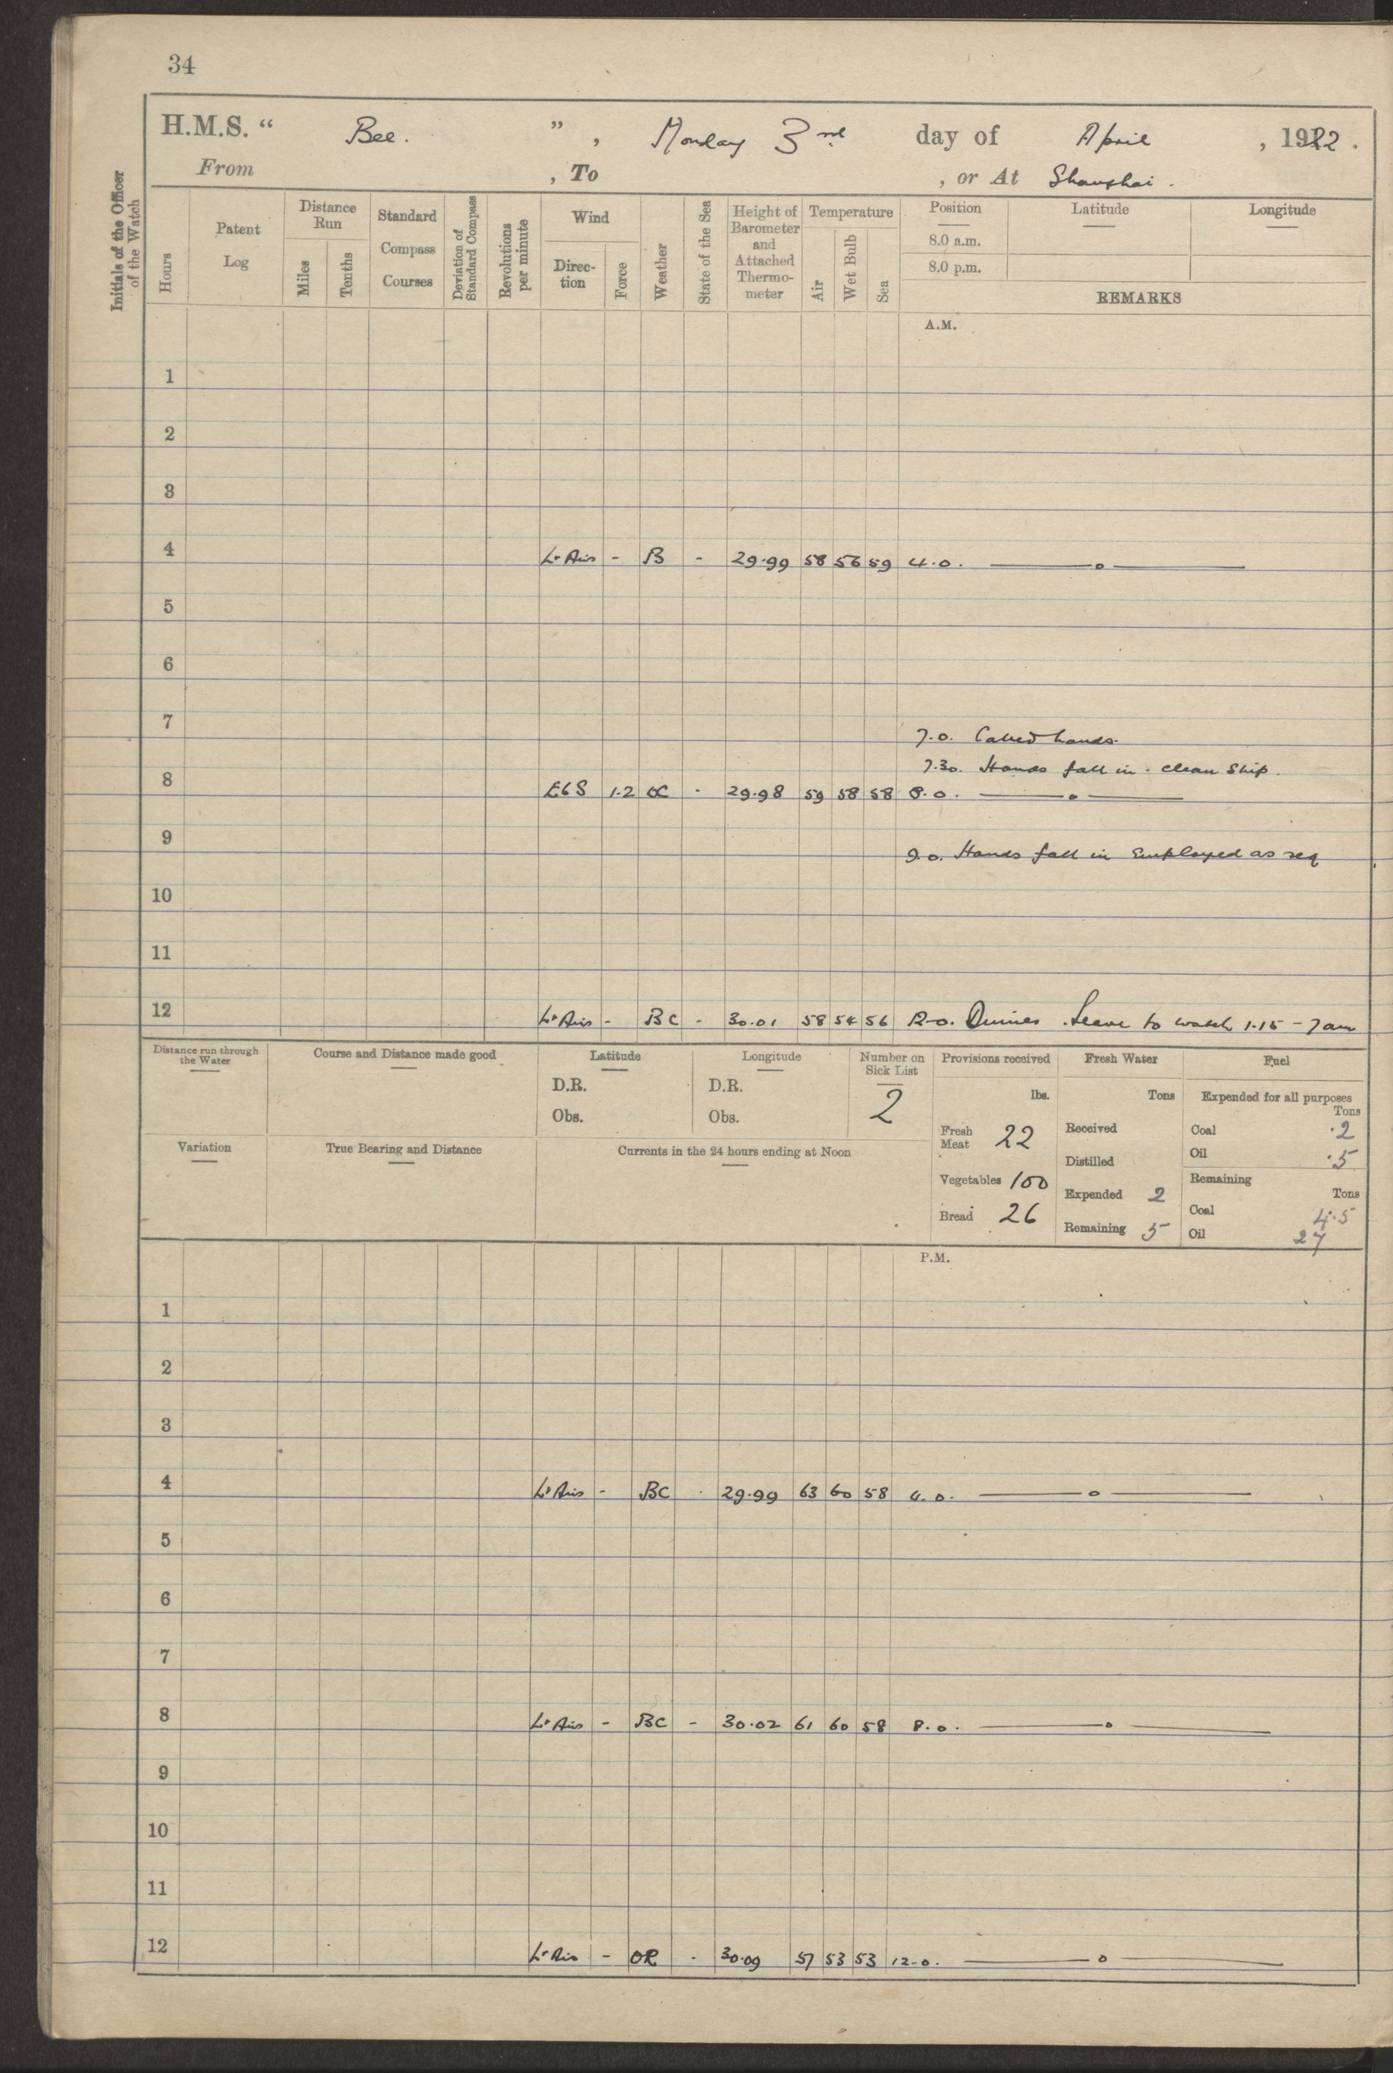 34
H.M.S. “ Bee. ” , Monday 3rd day of April , 1922 .
From , To , or At Shanghai .
Initials of the Officer of the Watch
Hours
Patent Log
Distance Run
Miles
Tenths
Standard Compass Courses
Deviation of Standard Compass
Revolutions per minute
Wind
Direc-tion
Force
Weather
State of the Sea
Height of Barometer and Attached Thermo-meter
Temperature
Air
Wet Bulb
Sea
Position Latitude Longitude
8.0 a.m.
8.0 p.m.
REMARKS
A.M.
1
2
3
4 Lt Airs - B - 29.99 58 56 59 4.0. ——o——
5
6
7 7.0. Called hands.
7.30. Hands fall in - clean Ship.
8 EbS 1.2 OC - 29.98 59 58 58 8.0. ——o——
9 9.0. Hands fall in Employed as req
10
11
12 Lt Airs - BC - 30.01 58 54 56 12.0. Dinner. Leave to watch 1.15 - 7am
Distance run through the Water
Course and Distance made good
Latitude
D.R.
Obs.
Longitude
D.R.
Obs.
Number on Sick List
2
Provisions received
lbs.
Fresh Meat 22
Vegetables 100
Bread 26
Fresh Water
Tons
Received
Distilled
Expended 2
Remaining 5
Fuel
Expended for all purposes
Tons
Coal .2
Oil .5
Remaining
Tons
Coal 4.5
Oil 27
Variation
True Bearing and Distance
Currents in the 24 hours ending at Noon
P.M.
1
2
3
4 Lt Airs - BC - 29.99 63 60 58 4.0. ——o——
5
6
7
8 Lt Airs - BC - 30.02 61 60 58 8.0. ——o——
9
10
11
12 Lt Airs - OR - 30.09 57 53 53 12.0. ——o——